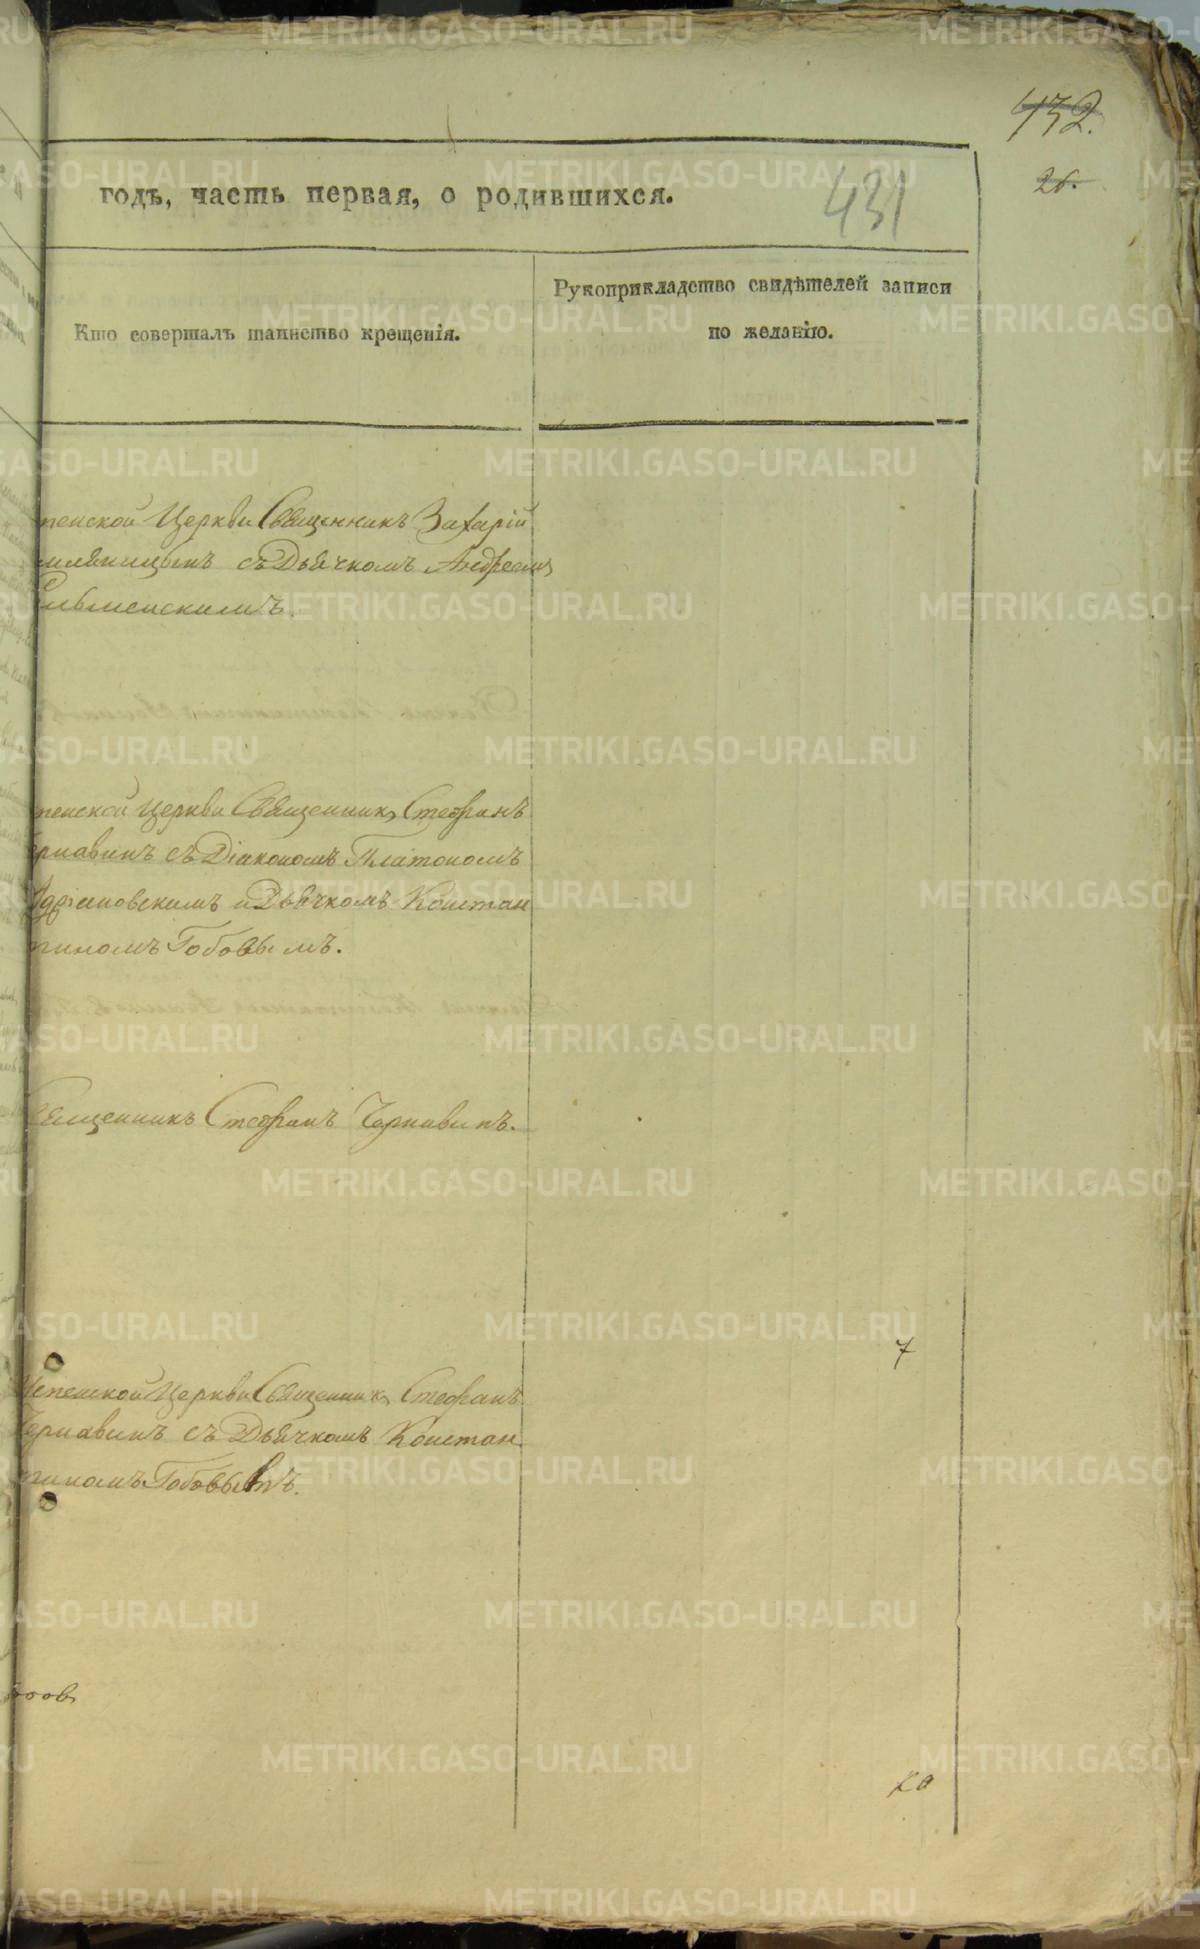 432.
26.
431
годъ, часть первая, о родившихся.
Кто совершалъ таинство крещенія.
Рукоприкладство свидѣтелей записи
по желанію.
пенской Церкви Священникъ Захарій
съ Дьячкомъ Андреемъ
пенской Церкви Священникъ Стефанъ
рнавинъ съ Діакономъ Платономъ
и Дьячкомъ Констан
тиномъ Гобовымъ.
Священникъ Стефанъ Чернавинъ.
7
Успенской Церкви Священникъ Стефанъ
Чернавинъ съ Дьячкомъ Констан
тиномъ
METRIKI.GASO-URAL.RU